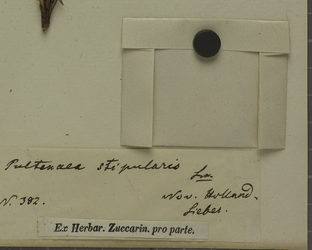 Pultenaea stipularis Sm.
N. 392. Nov. Holland.
Sieber.
Ex Herbar. Zuccarin. pro parte.